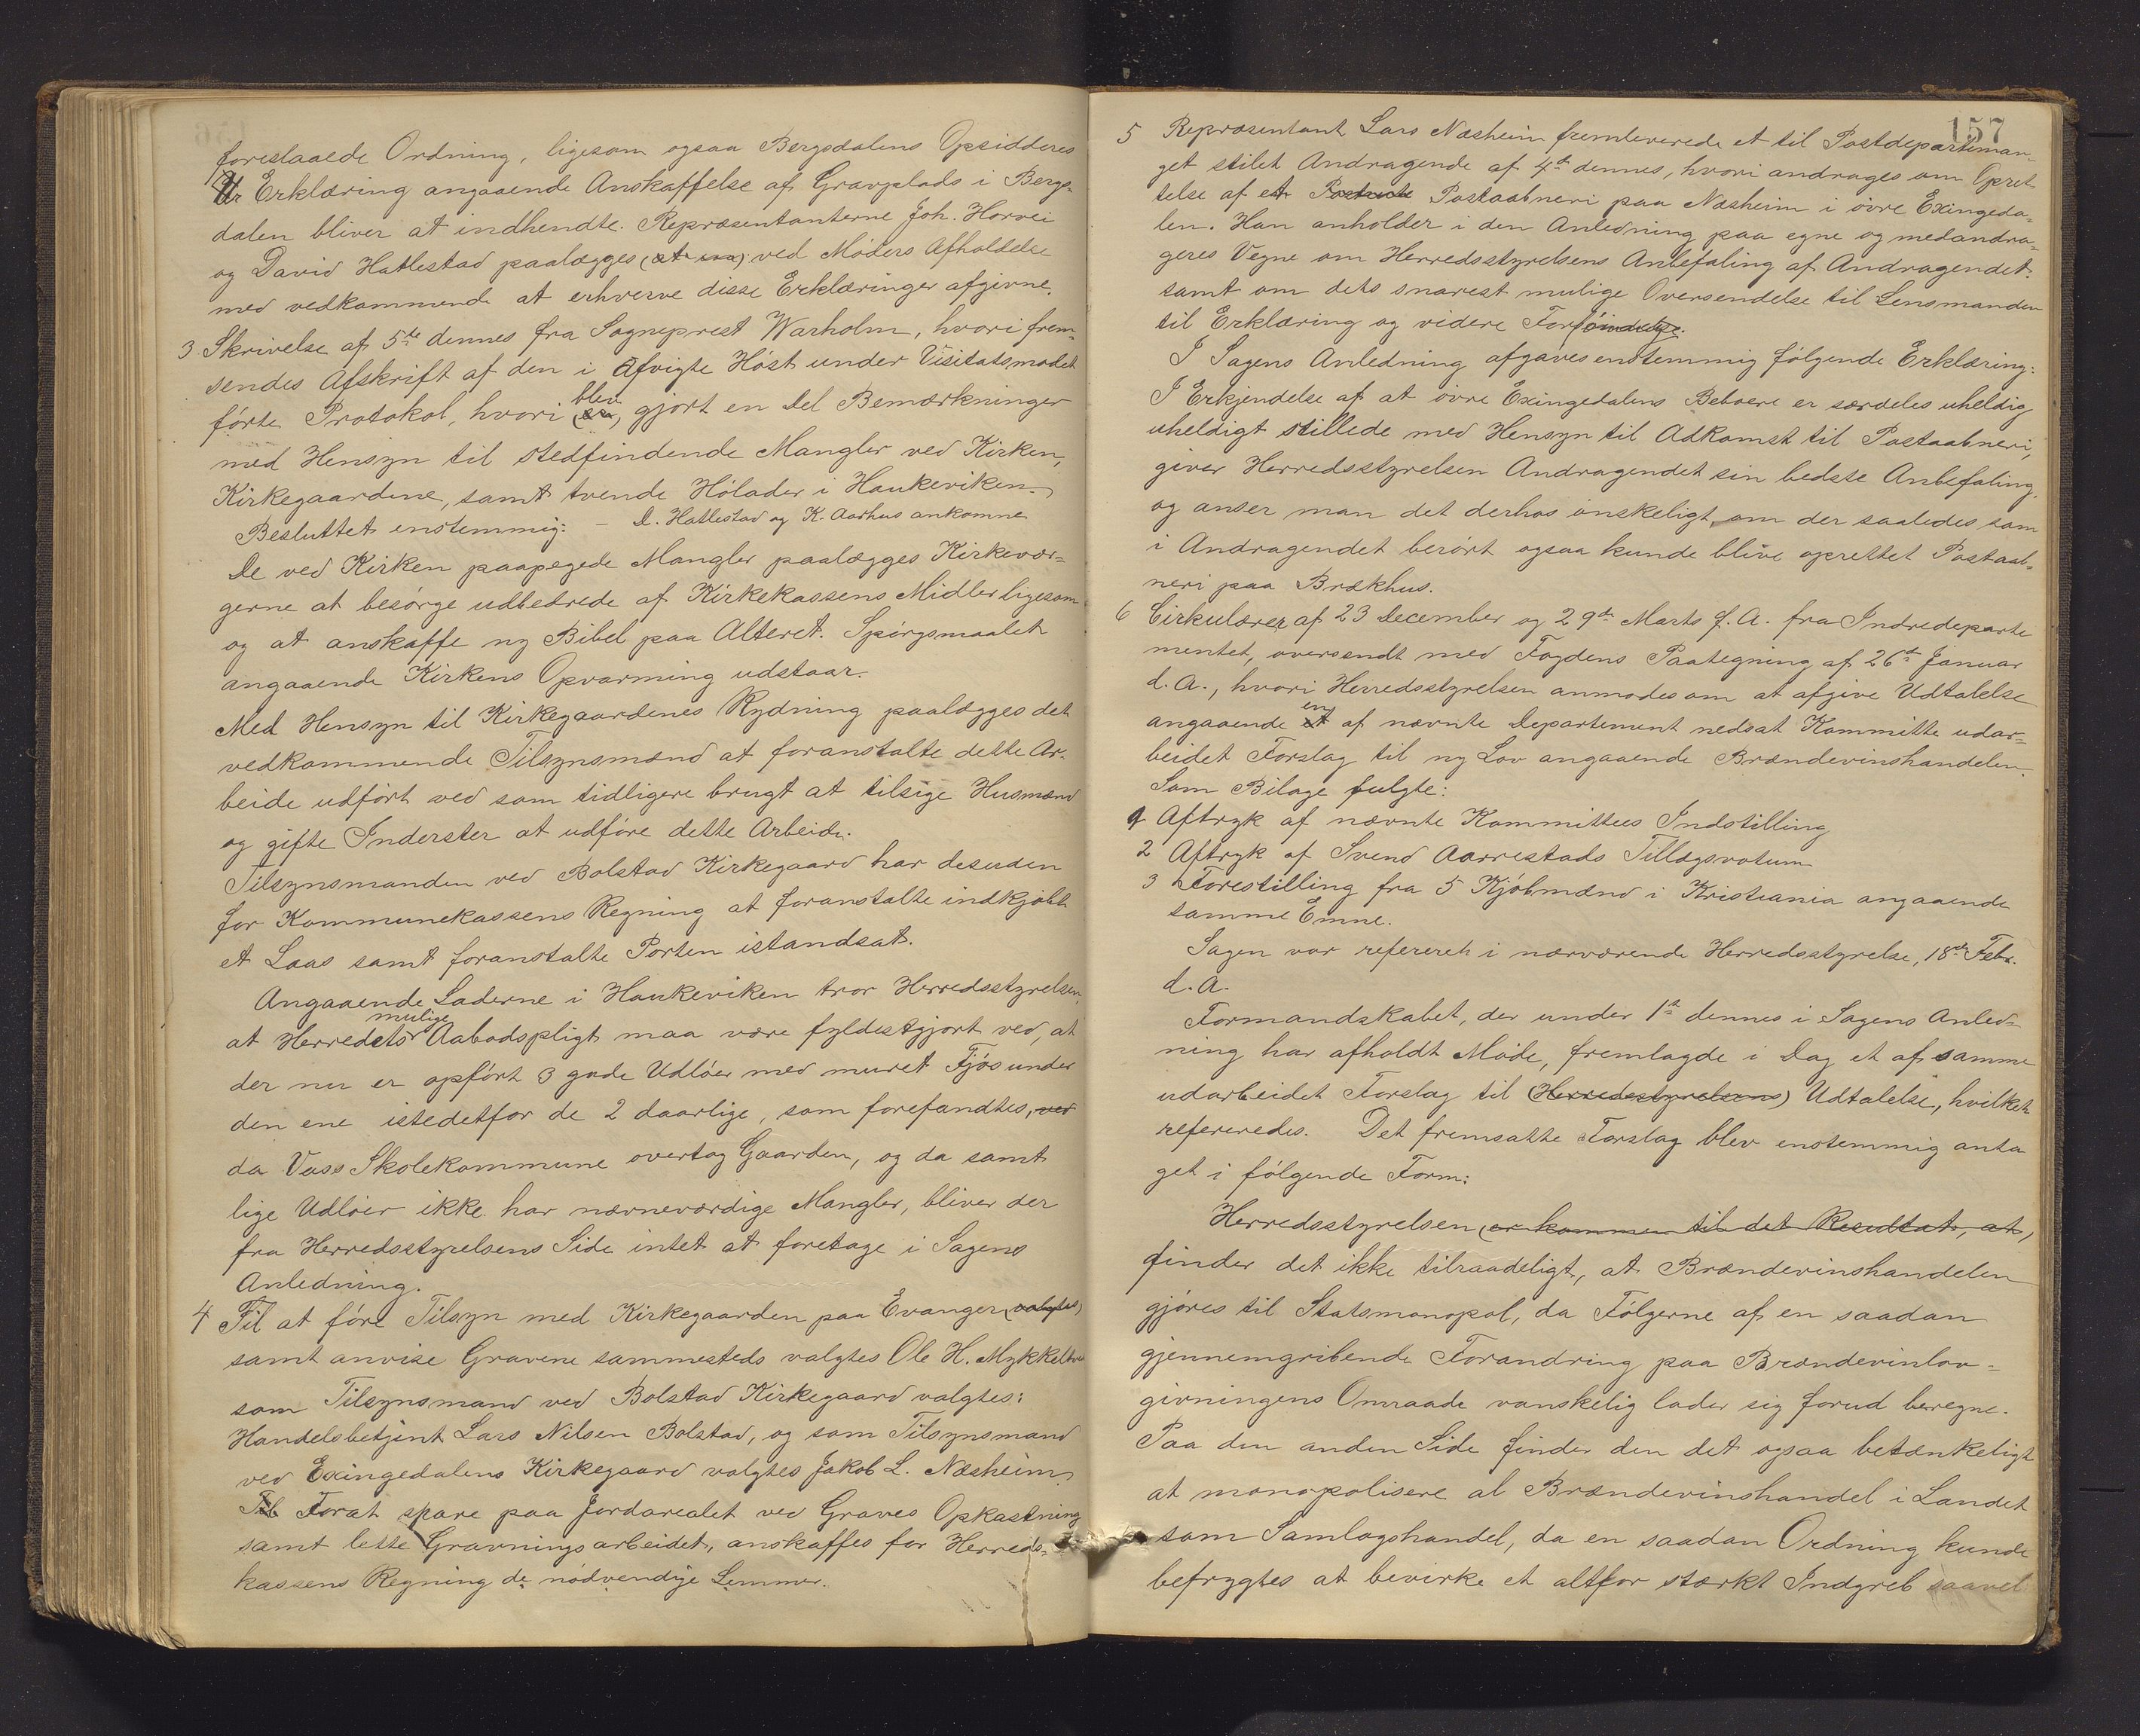 foreslaaede Ordning, ligesom ogsaa Bergsdalens Opsidderes
Erklæring angaaende Anskaffelse af Gravplads i Bergs-
dalen bliver at indhendte. Repræsentanterne Joh. Horvei
og David Hatlestad paalægges ved Møders Afholdelse
med vedkommende at erhverve disse Erklæringer afgivne.
3 Skrivelse af 5te dennes fra Sogneprest Warholm, hvori frem-
sendes Afskrift af den i afvigte Høst under Visitatsmødet
førte Protokol, hvori blev gjort en Del Bemærkninger
med Hensyn til stedfindende Mangler ved Kirken,
Kirkegaardene, samt tvende Hølader i Haukeviken.
Besluttet enstemmig: – D. Hatlestad og K. Aarhus ankomne
De ved Kirken paapegede Mangler paalægges Kirkevær-
gerne at besørge udbedrede af Kirkekassens Midler ligesom
og at anskaffe ny Bibel paa Alteret. Spørgsmaalet
angaaende Kirkens Opvarming udstaar.
Med Hensyn til Kirkegaardenes Rydning paalægges det
vedkommende Tilsynsmænd at foranstalte dette Ar-
beide udført ved som tidligere brugt at tilsige Husmænd
og gifte Inderster at udføre dette Arbeide.
Tilsynsmanden ved Bolstad Kirkegaard har desuden
for Kommunekassens Regning at foranstalte indkjøbt
et Laas samt foranstalte Porten istandsat.
Angaaende Laderne i Haukeviken tror Herredsstyrelsen,
at Herredets mulige Aabodspligt maa være fyldestgjort ved, at
der nu er opført 3 gode Udløer med muret Fjøs under
den ene istedetfor de 2 daarlige, som forefandtes, ved
da Voss Skolekommune overtog Gaarden, og da samt
lige Udløer ikke har nævneværdige Mangler, bliver der
fra Herredsstyrelsens Side intet at foretage i Sagens
Anledning.
4 Til at føre Tilsyn med Kirkegaarden paa Evanger (valgtes)
samt anvise Gravene sammesteds valgtes Ole H. Mykkeltve
som Tilsynsmand ved Bolstad Kirkegaard valgtes:
Handelsbetjent Lars Nilsen Bolstad, og som Tilsynsmand
ved Exingedalens Kirkegaard valgtes Jakob L. Næsheim.
Til Forat spare paa Jordarealet ved Graves Opkastning
samt lette Gravningsarbeidet, anskaffes for Herreds-
kassens Regning de nødvendige Lemmer.
157
5 Repræsentant Lars Næsheim fremleverede et til Postdepartemen-
get stilet Andragende af 4de dennes, hvori andrages om Opret-
telse af et Postaabneri paa Næsheim i øvre Exingeda-
len. Han anholder i den Anledning paa egne og medandra-
geres Vegne om Herredsstyrelsens Anbefaling af Andragendet
samt om dets snarest mulige Oversendelse til Lensmanden
til Erklæring og videre Forføindelse.
I Sagens Anledning afgaves enstemmig følgende Erklæring:
I Erkjendelse af at øvre Exingedalens Beboere er særdeles uheldig
uheldigt stillede med Hensyn til Adkomst til Postaabneri,
giver Herredsstyrelsen Andragendet sin bedste Anbefaling,
og anser man det derhos ønskeligt, om der saaledes som
i Andragendet berørt ogsaa kunde blive oprettet Postaab-
neri paa Brækhus.
6 Cirkulærer af 23 December og 29de Marts f. A. fra Indredeparte
mentet, oversendt med Fogdens Paategning af 26de Januar
d. A., hvori Herredsstyrelsen anmodes om at afgive Udtalelse
angaaende en af nævnte Departement nedsat Kommitte udar-
beidet Forslag til ny Lov angaaende Brændevinshandelen.
Som Bilage fulgte:
1 Aftryk af nævnte Kommittees Indstilling
2 Aftryk af Svend Aarrestads Tillægsvotum
3 Forestilling fra 5 Kjøbmænd i Kristiania angaaende
samme Emne.
Sagen var refereret i nærværende Herredsstyrelse, 18de Febr.
d. A.
Formandskabet, der under 1ste dennes i Sagens Anled-
ning har afholdt Møde, fremlagde i Dag et af samme
udarbeidet Forslag til (Herredsstyrelsens) Udtalelse, hvilket
refereredes. Det fremsatte Forslag blev enstemmig anta
get i følgende Form:
Herredsstyrelsen (er kommen til det Resultat, at,)
finder det ikke tilraadeligt, at Brændevinshandelen
gjøres til Statsmonopol, da Følgerne af en saadan
gjennemgribende Forandring paa Brændevinlov-
givningens Omraade vanskelig lader sig forud beregne.
Paa den anden Side finder den det ogsaa betænkeligt
at monopolisere al Brændevinshandel i Landet
som Samlagshandel, da en saadan Ordning kunde
befrygtes at bevirke et altfor stærkt Indgreb saavel